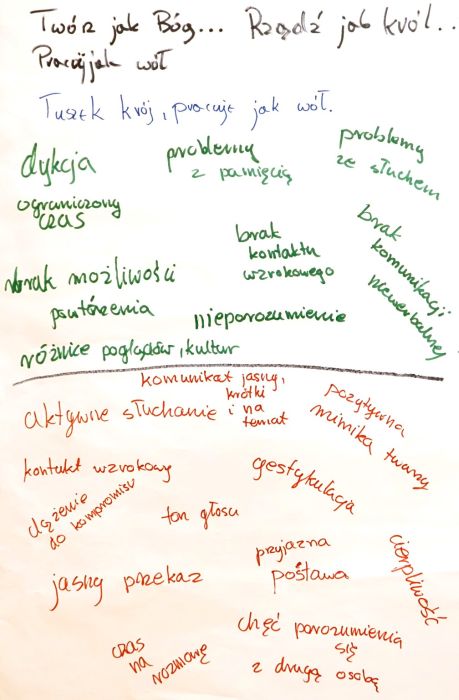 Twórz jak Bóg... Rządź jak król...
Pracuj jak wół
Tuszek krój, pracuje jak wół.
dykcja
problemy
z pamięcią
problemy
ze słuchem
ograniczony
czas
brak
kontaktu
wzrokowego
brak
komunikacji
niewerbalnej
brak możliwości
powtórzenia
nieporozumienie
różnice poglądów, kultur
komunikat jasny,
krótki
i na
temat
aktywne słuchanie
pozytywna
mimika twarzy
kontakt wzrokowy
gestykulacja
dążenie
do kompromisu
ton głosu
cierpliwość
jasny przekaz
przyjazna
postawa
czas
na
rozmowę
chęć porozumienia
się
z drugą osobą